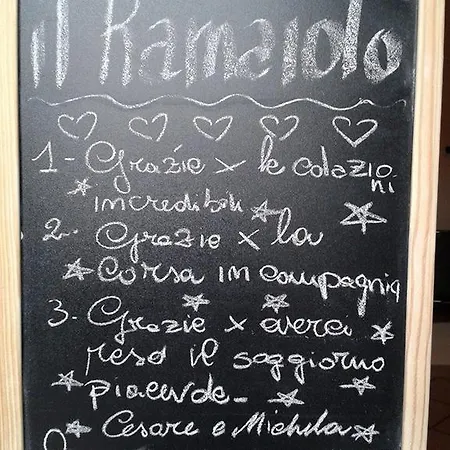 il Ramaiolo
1- Grazie x le colazioni
incredibili
2- Grazie x la
corsa in compagnia
3- Grazie x averci
reso il soggiorno
piacevole-
Cesare e Michela